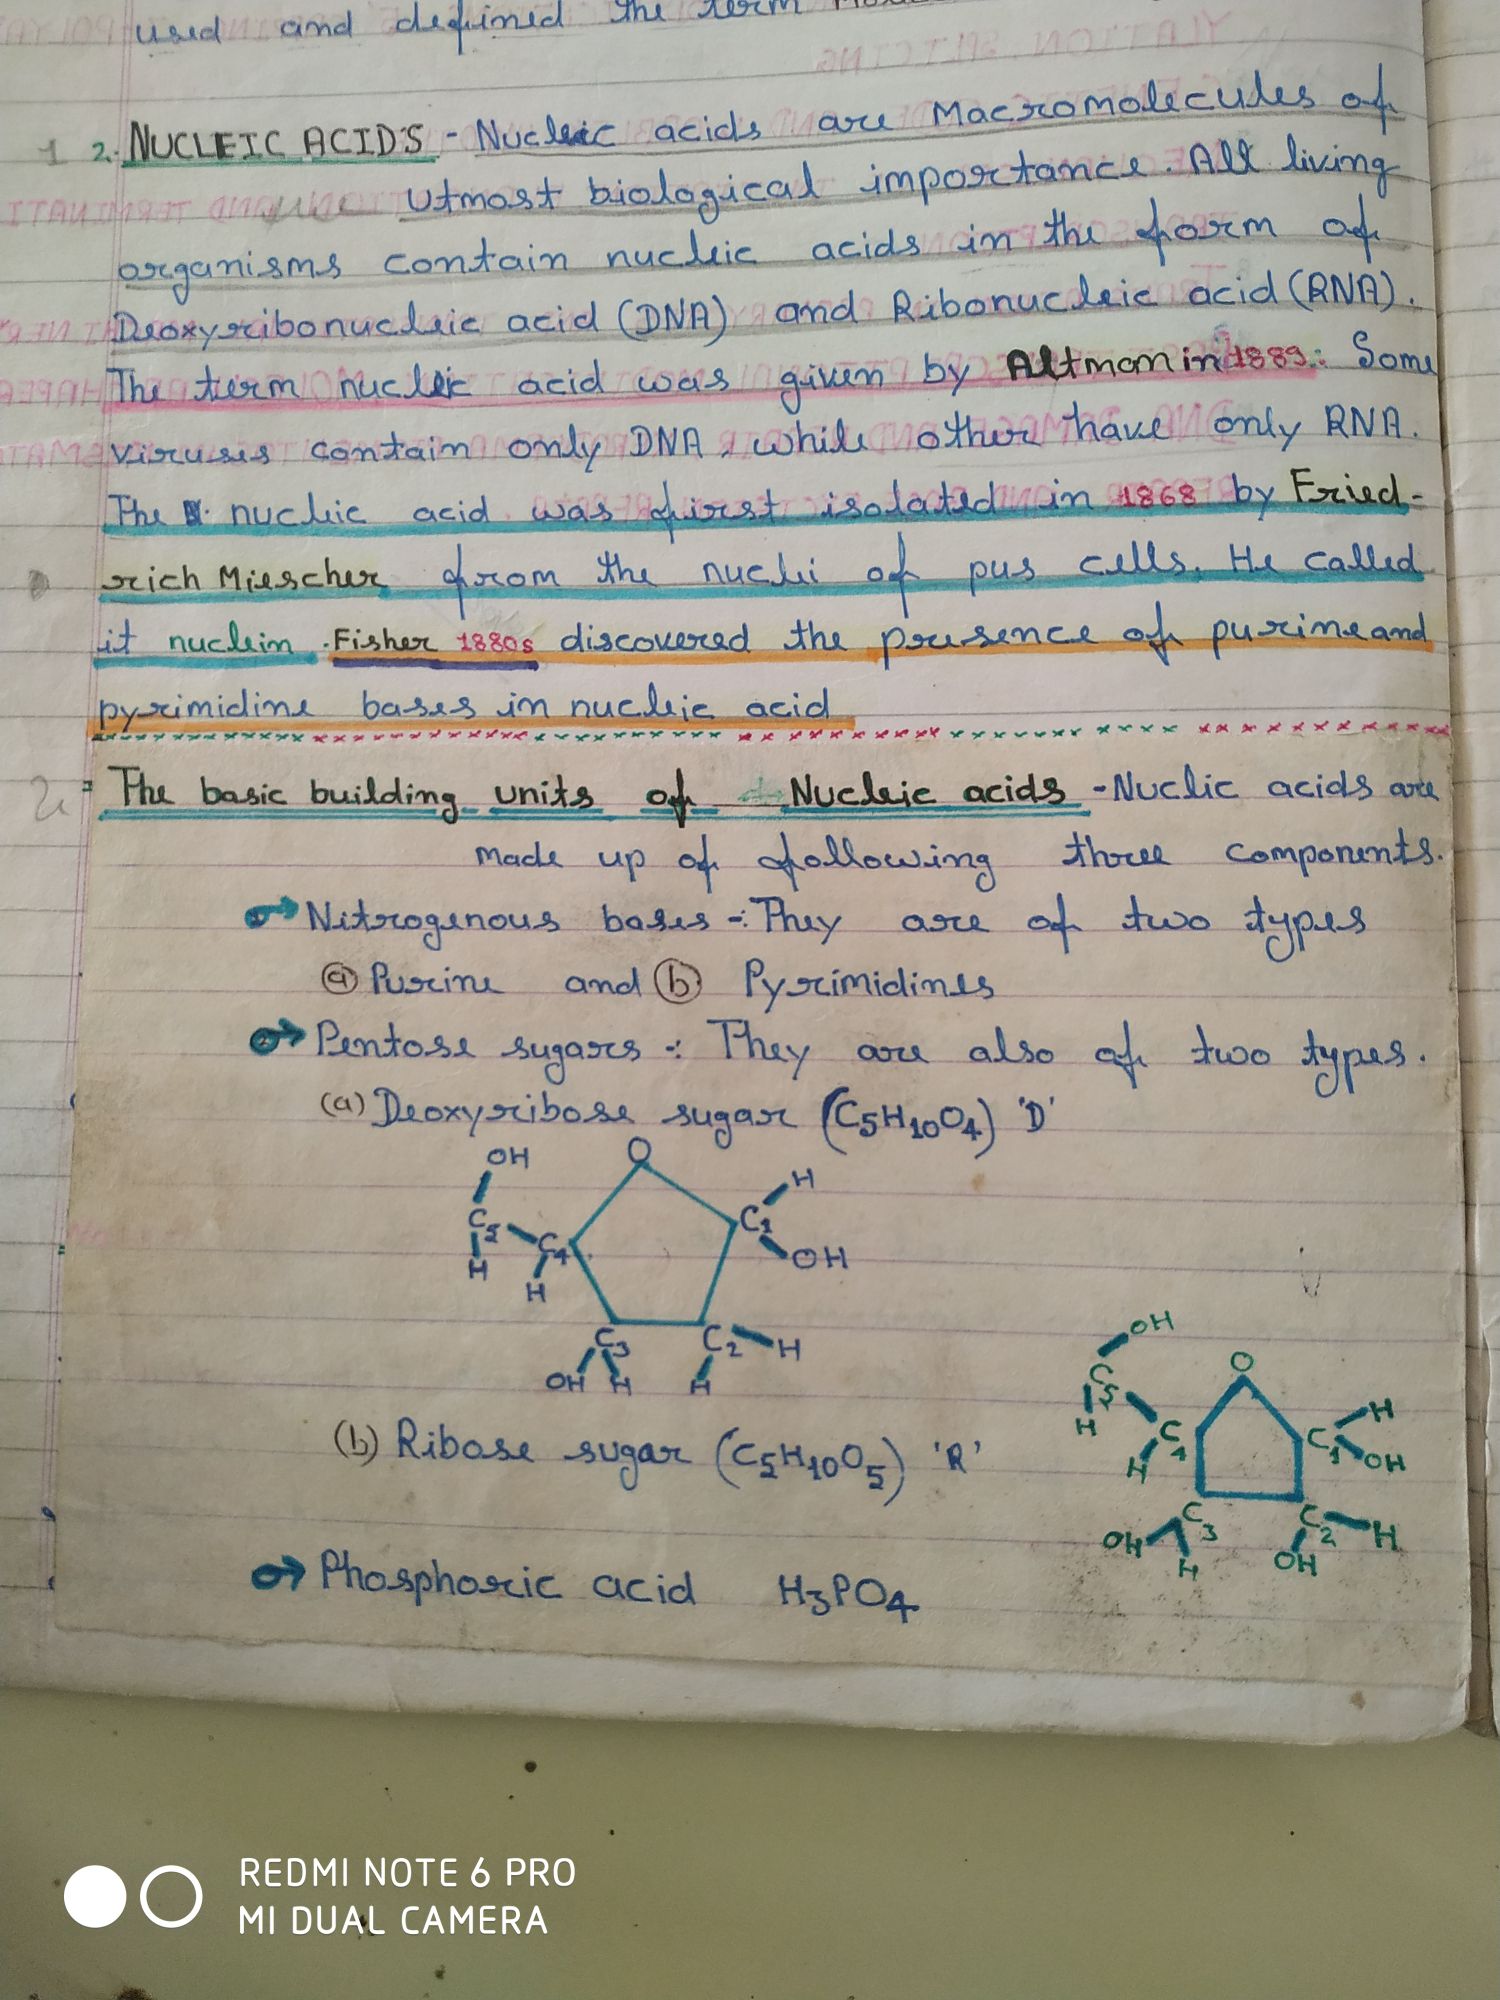 used and defined the term
2. NUCLEIC ACIDS - Nucleic acids are Macromolecules of
utmost biological importance. All living
organisms contain nucleic acids in the form of
Deoxyribonucleic acid (DNA) and Ribonucleic acid (RNA).
The term nucleic acid was given by Altman in 1889. Some
viruses contain only DNA, while other have only RNA.
The nucleic acid was first isolated in 1868 by Fried-
rich Miescher from the nuclei of pus cells. He called
it nuclein. Fisher 1880s discovered the presence of purine and
pyrimidine bases in nucleic acid
The basic building units of Nucleic acids - Nuclic acids are
made up of following three components.
Nitrogenous bases -: They are of two types
(a) Purine and (b) Pyrimidines
Pentose sugars -: They are also of two types.
(a) Deoxyribose sugar (C5H10O4) 'D'
OH O H
C5 C4 C1
H H OH
C3 C2 H
OH H H
OH
C5 O H
H C4 C1 OH
H
(b) Ribose sugar (C5H10O5) 'R'
C3 C2 H
OH H OH
Phosphoric acid H3PO4
REDMI NOTE 6 PRO
MI DUAL CAMERA